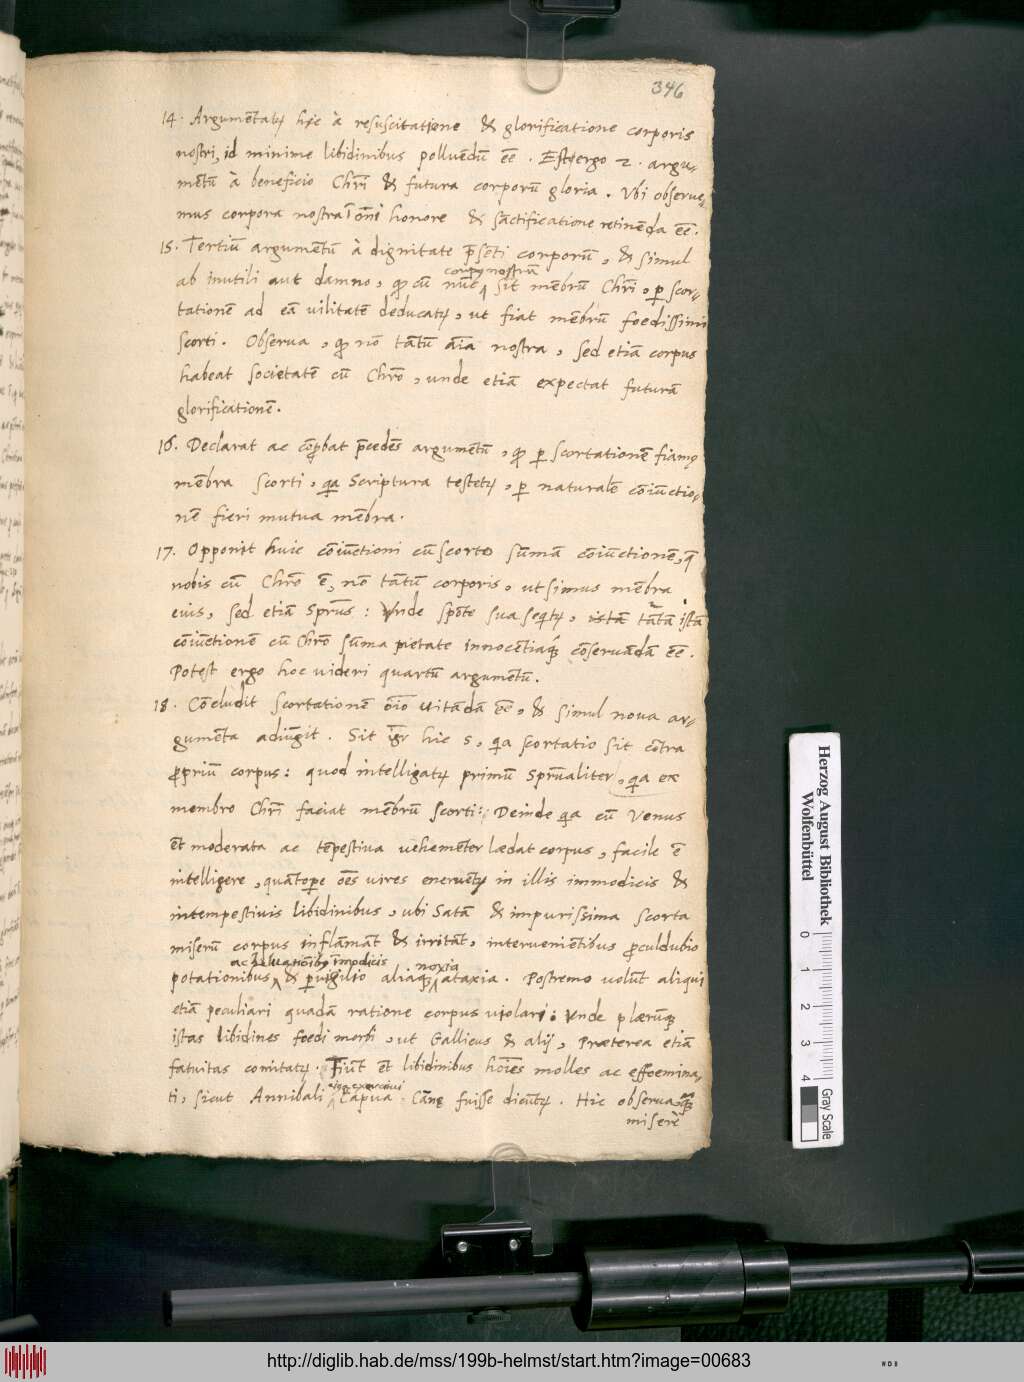 346
14. Argumētatꝛ hic à resuscitatione & glorificatione corporis
nostri, id minime libidinibus polluēdū eē. Est ergo 2. argu-
mētū à beneficio Chrī & futura corporū gloria. Vbi observe-
mus corpora nostra ī oṁi honore & sāctificatione retinēda eē.
15. Tertiū argumētū à dignitate p̄sēti corporū, & simul
corpꝰ nostrū
ab inutili aut damno, qꝫ cū nūc sit mēbrū Chrī, ꝑ scor-
tationē ad eā uilitatē deducatꝛ, ut fiat mēbrū foedissimi
scorti. Observa, qꝫ nō tātū aīa nostra, sed etiā corpus
habeat societatē cū Chrō, unde etiā expectat futurā
glorificationē.
16. Declarat ac cōꝓbat p̄cedēs argumētū, qꝫ ꝑ scortationē fiamꝰ
mēbra scorti, qa Scriptura testetꝛ, ꝑ naturalē cōiūctio-
nē fieri mutua mēbra.
17. Opponit huic cōiūctioni cū scorto sūmā cōiūctionē, q̄
nobis cū Chrō ē, nō tātū corporis, ut simus mēbra
eius, sed etiā Sprūs: Vnde spōte sua seqitꝛ, istā tātā istā
cōiūctionē cū Chrō sūma pietate innocētiaqꝫ cōservādā eē.
Potest ergo hoc videri quartū argumētū.
18. Cōcludit scortationē oīo uitādā eē, & simul nova ar-
gumēta adiūgit. Sit igr̄ hic 5, qa scortatio sit cōtra
ꝓpriū corpus: quod intelligatꝛ primū Sprūaliter, qa ex
membro Chrī faciat mēbrū scorti: Deinde qa cū Venus
ēt moderata ac tēpestiva uehemēter lædat corpus, facile ē
intelligere, quātoꝑe oēs uires eneruētꝛ in illis immodicis &
intempestivis libidinibus, ubi Satā & impurissima scorta
miserū corpus inflāmāt & irritāt, intervenientibus ꝓculdubio
ac īmodicis noxia
potationibus, & ꝑvigilio aliaqꝫ ataxia. Postremo volūt aliqui
etiā peculiari quadā ratione corpus violari: Vnde plærūqꝫ
istas libidines foedi morbi, ut Gallicus & alij, Præterea etiā
fatuitas comitatꝛ. Fiūt ēt libidinibus hoīes molles ac effoemina-
ti, sicut Annibali Capua Cānę fuisse dicūtꝛ. Hic observa,
miserè
Herzog August Bibliothek
Wolfenbüttel
0 1 2 3 4
Gray Scale
http://diglib.hab.de/mss/199b-helmst/start.htm?image=00683
WDB